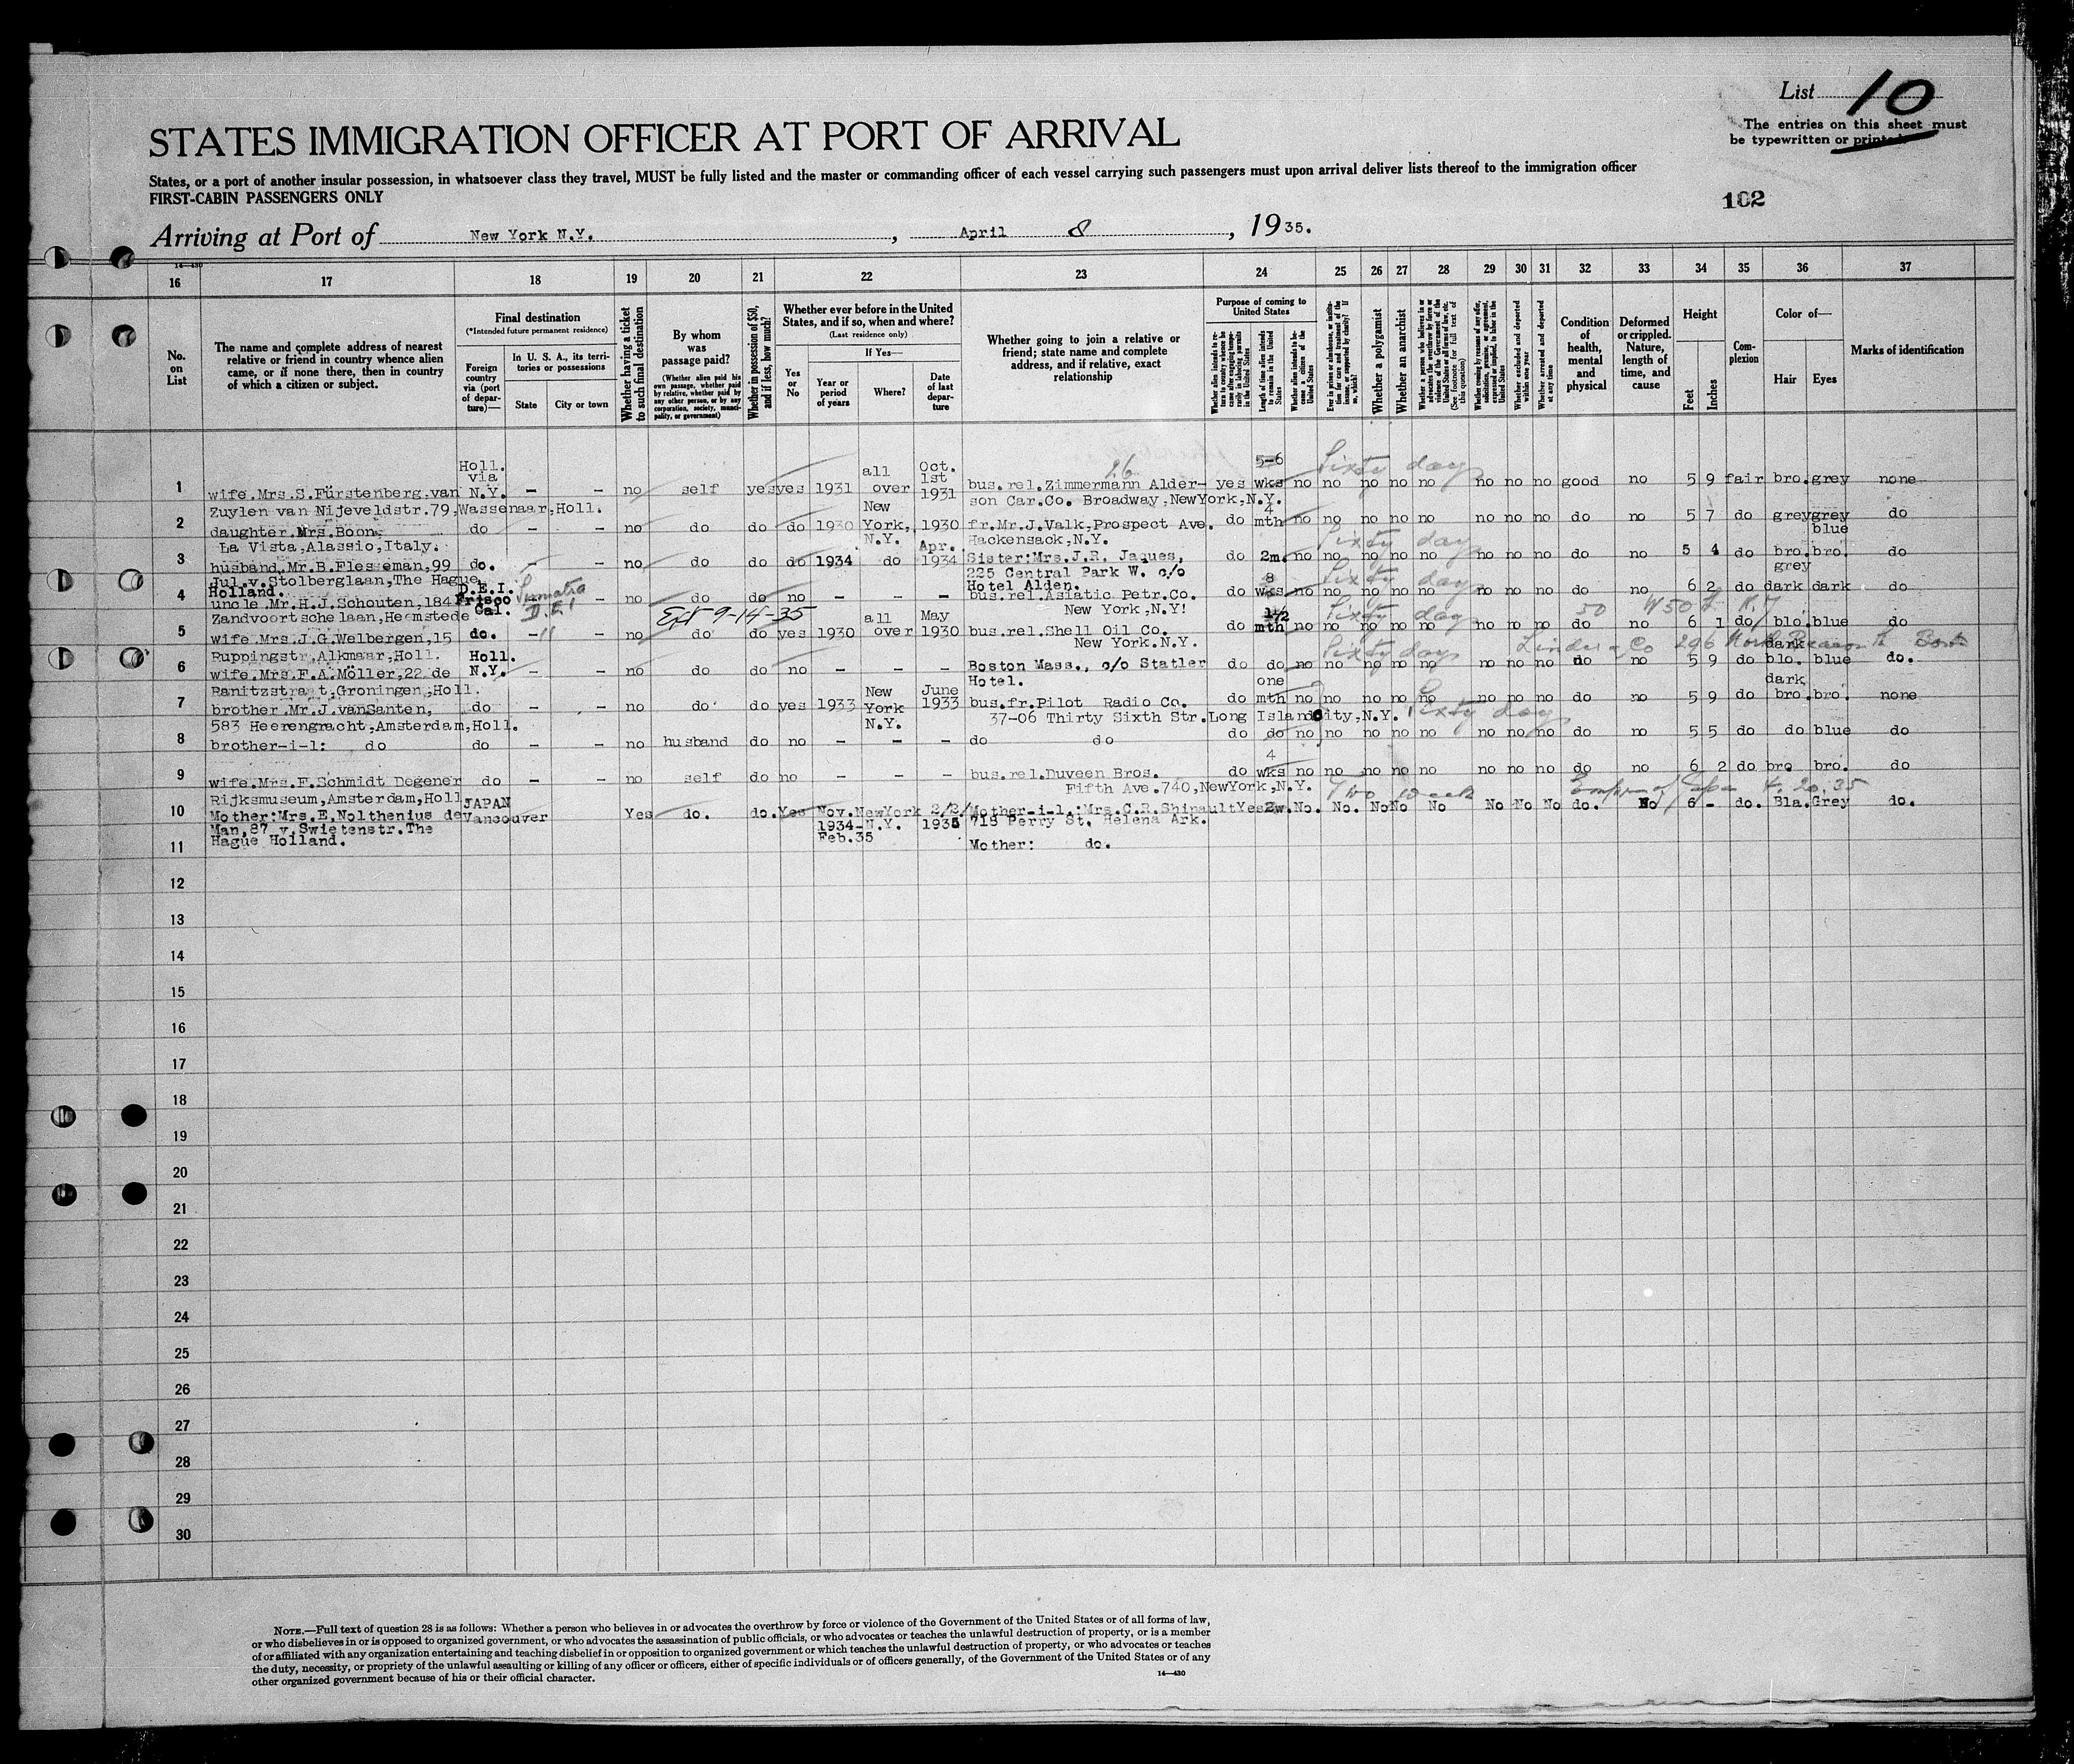 List 10
The entries on this sheet must
be typewritten or printed.
STATES IMMIGRATION OFFICER AT PORT OF ARRIVAL
States, or a port of another insular possession, in whatsoever class they travel, MUST be fully listed and the master or commanding officer of each vessel carrying such passengers must upon arrival deliver lists thereof to the immigration officer
FIRST-CABIN PASSENGERS ONLY
102
Arriving at Port of New York N.Y., April 8, 1935.
14—430
16 17 18 19 20 21 22 23 24 25 26 27 28 29 30 31 32 33 34 35 36 37
No. on List
The name and complete address of nearest relative or friend in country whence alien came, or if none there, then in country of which a citizen or subject.
Final destination
(*Intended future permanent residence)
Foreign country via (port of departure)—
In U. S. A., its territories or possessions
State
City or town
Whether having a ticket to such final destination
By whom was passage paid?
(Whether alien paid his own passage, whether paid by relative, whether paid by any other person, or by any corporation, society, municipality, or government)
Whether in possession of $50, and if less, how much?
Whether ever before in the United States, and if so, when and where?
(Last residence only)
Yes or No
If Yes—
Year or period of years
Where?
Date of last departure
Whether going to join a relative or friend; state name and complete address, and if relative, exact relationship
Purpose of coming to United States
Whether alien intends to return to country whence he came after engaging temporarily in laboring pursuits in the United States
Length of time alien intends to remain in the United States
Whether alien intends to become a citizen of the United States
Ever in prison or almshouse, or institution for care and treatment of the insane, or supported by charity? If so, which?
Whether a polygamist
Whether an anarchist
Whether a person who believes in or advocates the overthrow by force or violence of the Government of the United States or all forms of law, etc. (See footnote for full text of this question)
Whether coming by reason of any offer, solicitation, promise, or agreement, expressed or implied, to labor in the United States
Whether excluded and deported within one year
Whether arrested and deported at any time
Condition of health, mental and physical
Deformed or crippled. Nature, length of time, and cause
Height
Feet
Inches
Complexion
Color of—
Hair
Eyes
Marks of identification
1 wife.Mrs.S.Fürstenberg.van Holl. via N.Y. – – no self yes yes 1931 all over Oct. 1st 1931 bus.rel.Zimmermann Alder- yes 5-6 wks no no no no no no no no good no 5 9 fair bro. grey none
Sixty days
Zuylen van Nijeveldstr.79,Wassenaar,Holl. son Car.Co. Broadway,NewYork,N.Y.
26
2 daughter.Mrs.Boon, do – – no do do do 1930 New York, N.Y. 1930 fr.Mr.J.Valk,Prospect Ave. do 4 mth no no no no no no no no do no 5 7 do grey grey do
La Vista,Alassio,Italy. Hackensack,N.Y.
Sixty days
3 husband.Mr.B.Flesseman,99 do. – – no do do do 1934 do Apr. 1934 Sister:Mrs.J.R. Jaques, do 2m. no no no no no no no no do no 5 4 do bro. blue bro. do
Jul.v.Stolberglaan,The Hague, Holland. 225 Central Park W. c/o Hotel Alden.
Sixty days
4 uncle.Mr.H.J.Schouten,184 D.E.I. Frisco Cal. Sumatra D.E.I – no do do no – – – bus.rel.Asiatic Petr.Co. do 8 wks no no no no no no no no do no 6 2 do grey dark dark do
Zandvoortschelaan,Heemstede New York,N.Y!
Ext 9-14-35
Sixty days
50 W 50 N.Y
5 wife.Mrs.J.G.Welbergen,15 do. – " no do do yes 1930 all over May 1930 bus.rel.Shell Oil Co. do 1/2 mth no no no no no no no no do no 6 1 do blo. blue do
Ruppingstr,Alkmaar,Holl. New York.N.Y.
Sixty days
296 North Beacon
6 wife.Mrs.F.A.Möller,22 de Holl. N.Y. – – no do do no – – – Boston Mass., c/o Statler do do no no no no no no no no do no 5 9 do dark blo. blue do.
Ranitzstraat,Groningen,Holl. Hotel.
7 brother.Mr.J.vanSanten, do – – no do do yes 1933 New York N.Y. June 1933 bus.fr.Pilot Radio Co. do one mth no no no no no no no no do no 5 9 do dark bro. bro. none
583 Heerengracht,Amsterdam,Holl. 37-06 Thirty Sixth Str.Long Island City,N.Y.
Sixty days
8 brother-i-l: do do – – no husband do no – – – do do do do no no no no no no no no do no 5 5 do do blue do
9 wife.Mrs.F.Schmidt Degener do – – no self do no – – – bus.rel.Duveen Bros. do 4 wks no no no no no no no no do no 6 2 do bro bro. do
Rijksmuseum,Amsterdam,Holl. Fifth Ave.740,NewYork,N.Y.
Two week
4.20.35
10 Mother:Mrs.E.Nolthenius de JAPAN Vancouver Yes do. do. Yes Nov. 1934- Feb.35 NewYork N.Y. 2/2/ 1935 Mother-i-l.:Mrs.C.R.Shinault Yes 2w. No. No. No No No No No No do. No 6 - do. Bla. Grey do.
Man,87 v.Swietenstr.The 718 Perry St. Helena Ark.
Hague Holland.
11 Mother: do.
12
13
14
15
16
17
18
19
20
21
22
23
24
25
26
27
28
29
30
NOTE.—Full text of question 28 is as follows: Whether a person who believes in or advocates the overthrow by force or violence of the Government of the United States or of all forms of law,
or who disbelieves in or is opposed to organized government, or who advocates the assassination of public officials, or who advocates or teaches the unlawful destruction of property, or is a member
of or affiliated with any organization entertaining and teaching disbelief in or opposition to organized government or which teaches the unlawful destruction of property, or who advocates or teaches
the duty, necessity, or propriety of the unlawful assaulting or killing of any officer or officers, either of specific individuals or of officers generally, of the Government of the United States or of any
other organized government because of his or their official character.
14—430